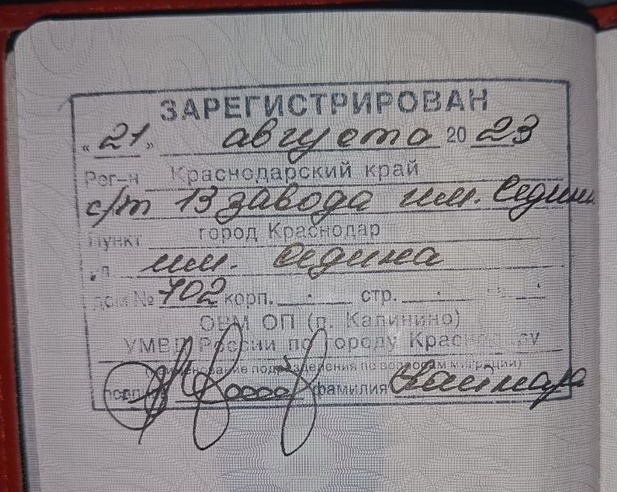 ЗАРЕГИСТРИРОВАН
« 21 » августа 20 23
Рег-н Краснодарский край
с/т 13 завода им. Седина
Пункт город Краснодар
ул. им. Седина
дом № 702 корп. стр.
ОВМ ОП (п. Калинино)
УМВД России по городу Краснодару
(наименование подразделения по вопросам миграции)
подп. фамилия